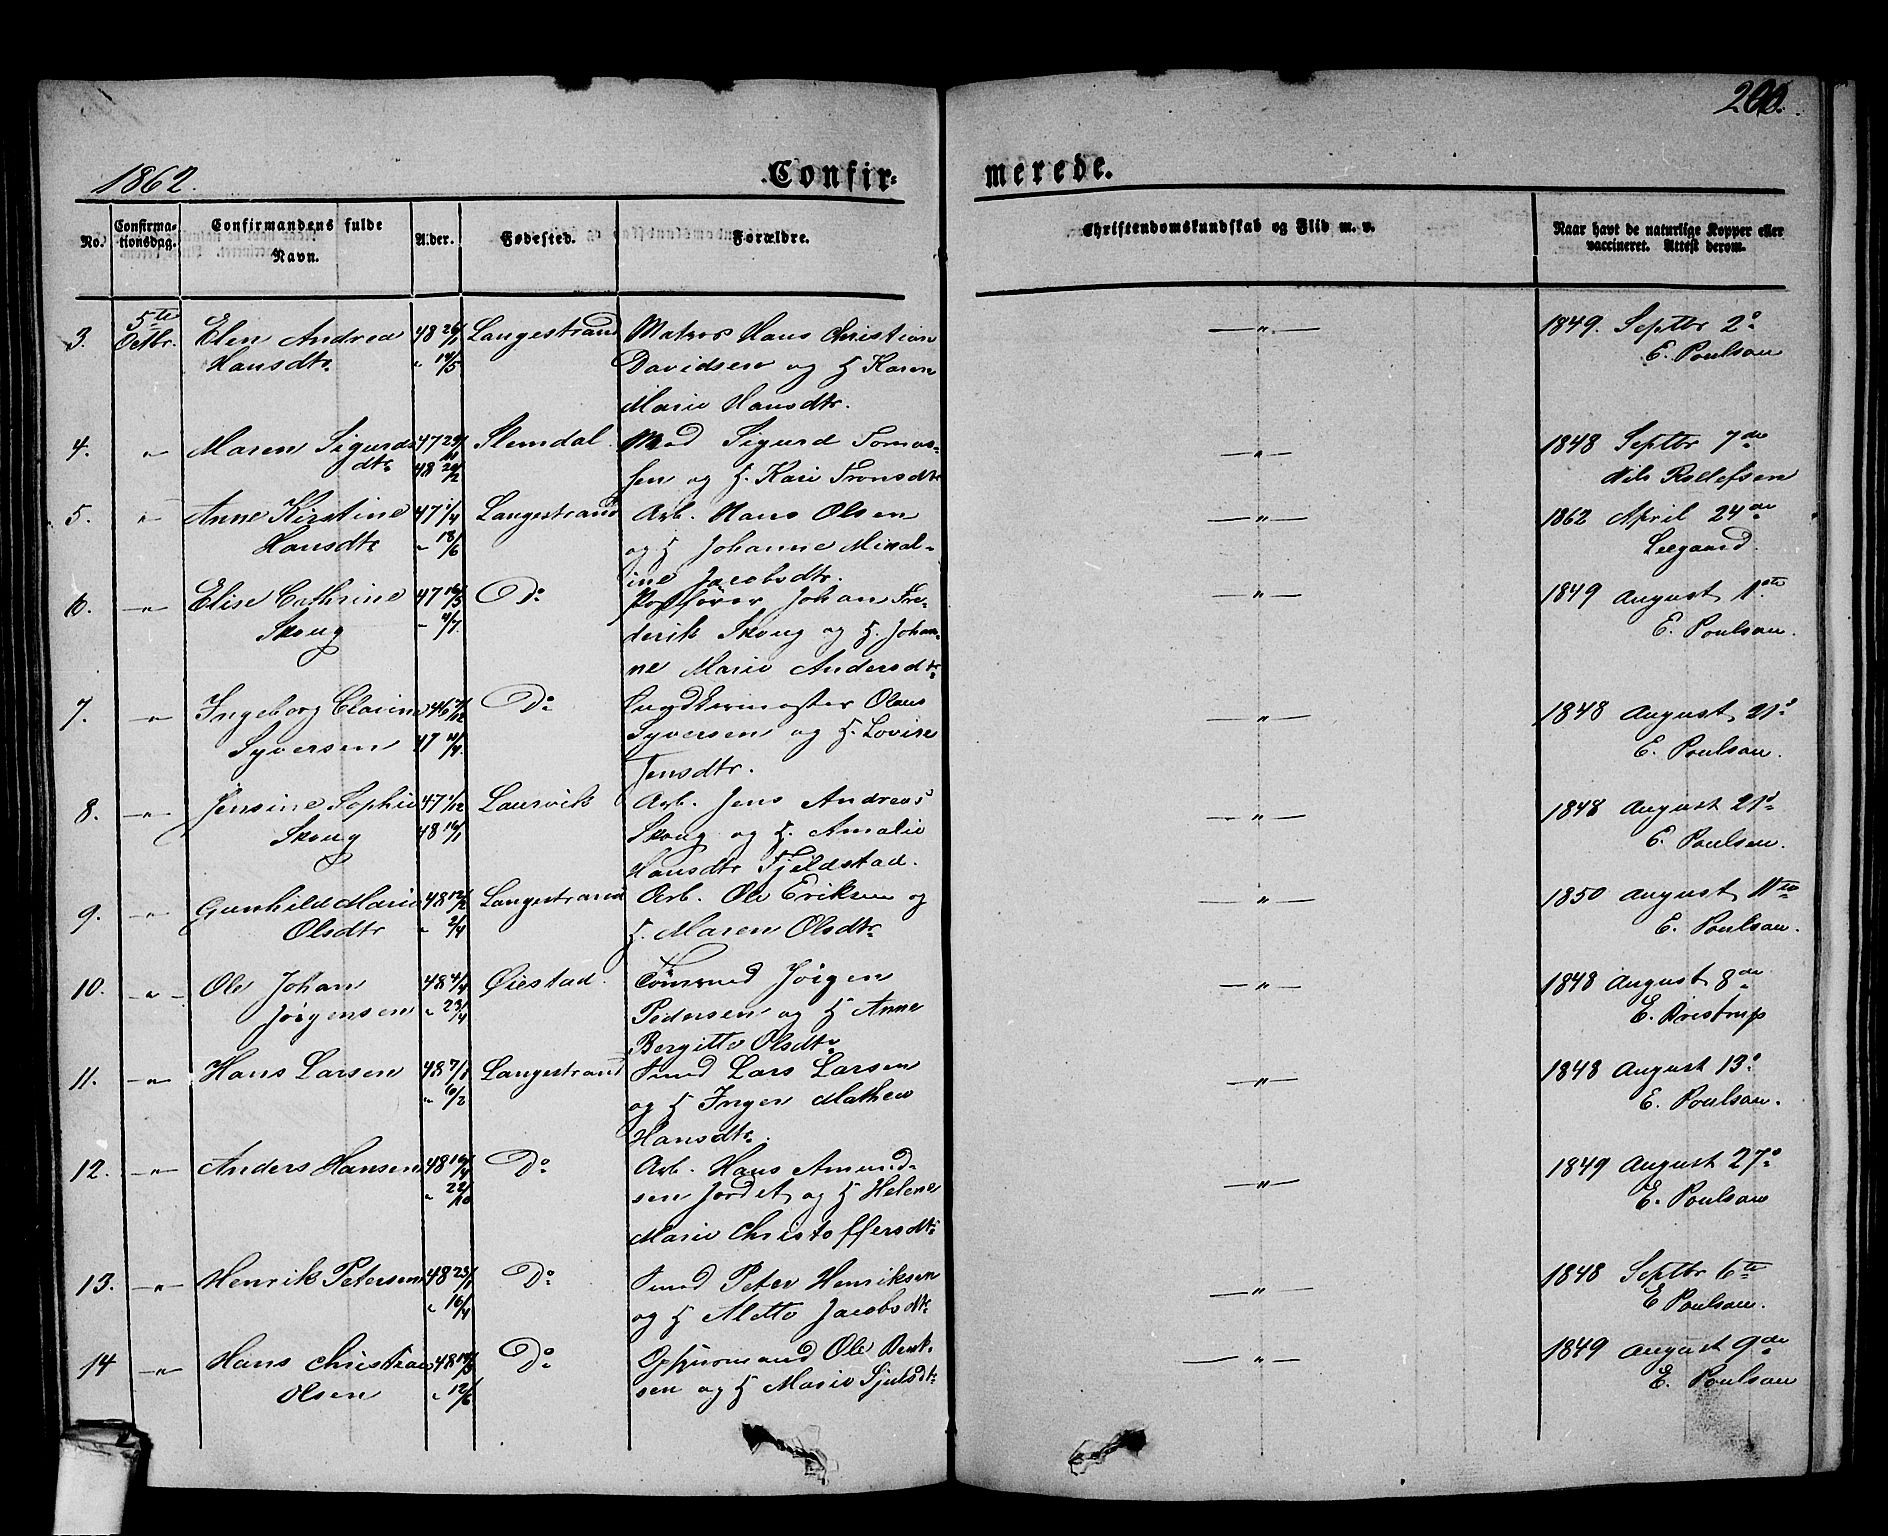 200.
1862.
Confir-
merede.
No.
Confirma-
tionsdag.
Confirmandens fulde
Navn.
Alder.
Fødested.
Forældre.
Christendomskundskab og Flid m. v.
Naar havt de naturlige Kopper eller
vaccineret. Attest derom.
3. 5te Elen Andrea 48 Langestrand Matros Hans Christian — " — 1849. Septbr 2°
Octbr. Hansdtr " Davidsen og H. Karen E. Poulsen
Marie Hansdtr.
4. " Maren Sigurds 47 Slemdal Sigurd Tomas- — " — 1848 Septbr 7de
dtr 48 sen og H. Kari Tronsdtr Nils Rollefsen
5. " Anne Kirstine 47 1/4 Langestrand Arb. Hans Olsen — " — 1862 April 24de
Hansdtr " 18/6 og H Johanne Minal- Leegaard.
ine Jacobsdtr.
6. " Elise Cathrine 47 D° Postfører Johan Fre- — " — 1849 August 1ste
Skoug " derik Skoug og H. Johan- E. Poulsen.
ne Marie Andersdtr
7. " Ingeborg Clarine 46 D° Olaus — " — 1848 August 21°
Syversen 47 Syversen og H. Lovise E. Poulsen.
Jensdtr.
8. " Jensine Sophie 47 1/12 Laurvik Arb. Jens Andreas — " — 1848 August 21d
Skoug 48 16/1 Skoug og H. Amalie E. Poulsen.
Hansdtr Fjeldstad.
9. " Gunhilde Marie 48 12/2 Langestrand Arb. Ole Eriksen og — " — 1850 August
Olsdtr " 2/4 H. Maren Olsdtr E. Poulsen.
10. " Ole Johan 48 4/4 Øiestad. Tømmd Jörgen — " — 1848 August 8de
Jörgensen " 23/4 Pedersen og H Anne E. Qvistrup
Bergitte Olsdtr
11. " Hans Larsen 48 7/1 Langestrand Smed Lars Larsen — " — 1848 August 13°
" 6/2 og H Inger Mathea E. Poulsen.
Hansdtr.
12. " Anders Hansen 48 16/4 D° Arb. Hans Amund- — " — 1849 August 27°
" 22/10 sen Jordet og H Helene E. Poulsen
Marie Christoffersdtr
13. " Henrik Petersen 48 23/1 D° Smed Peter Henriksen — " — 1848 Septbr 6te
" 16/4 og H Alette Jacobsdtr E Poulsen.
14 " Hans Christian 48 D° Opsynsmand Ole Bent- — " — 1849 August 9de
Olsen " 12/6 sen og H Marie Sjulsdtr E. Poulsen